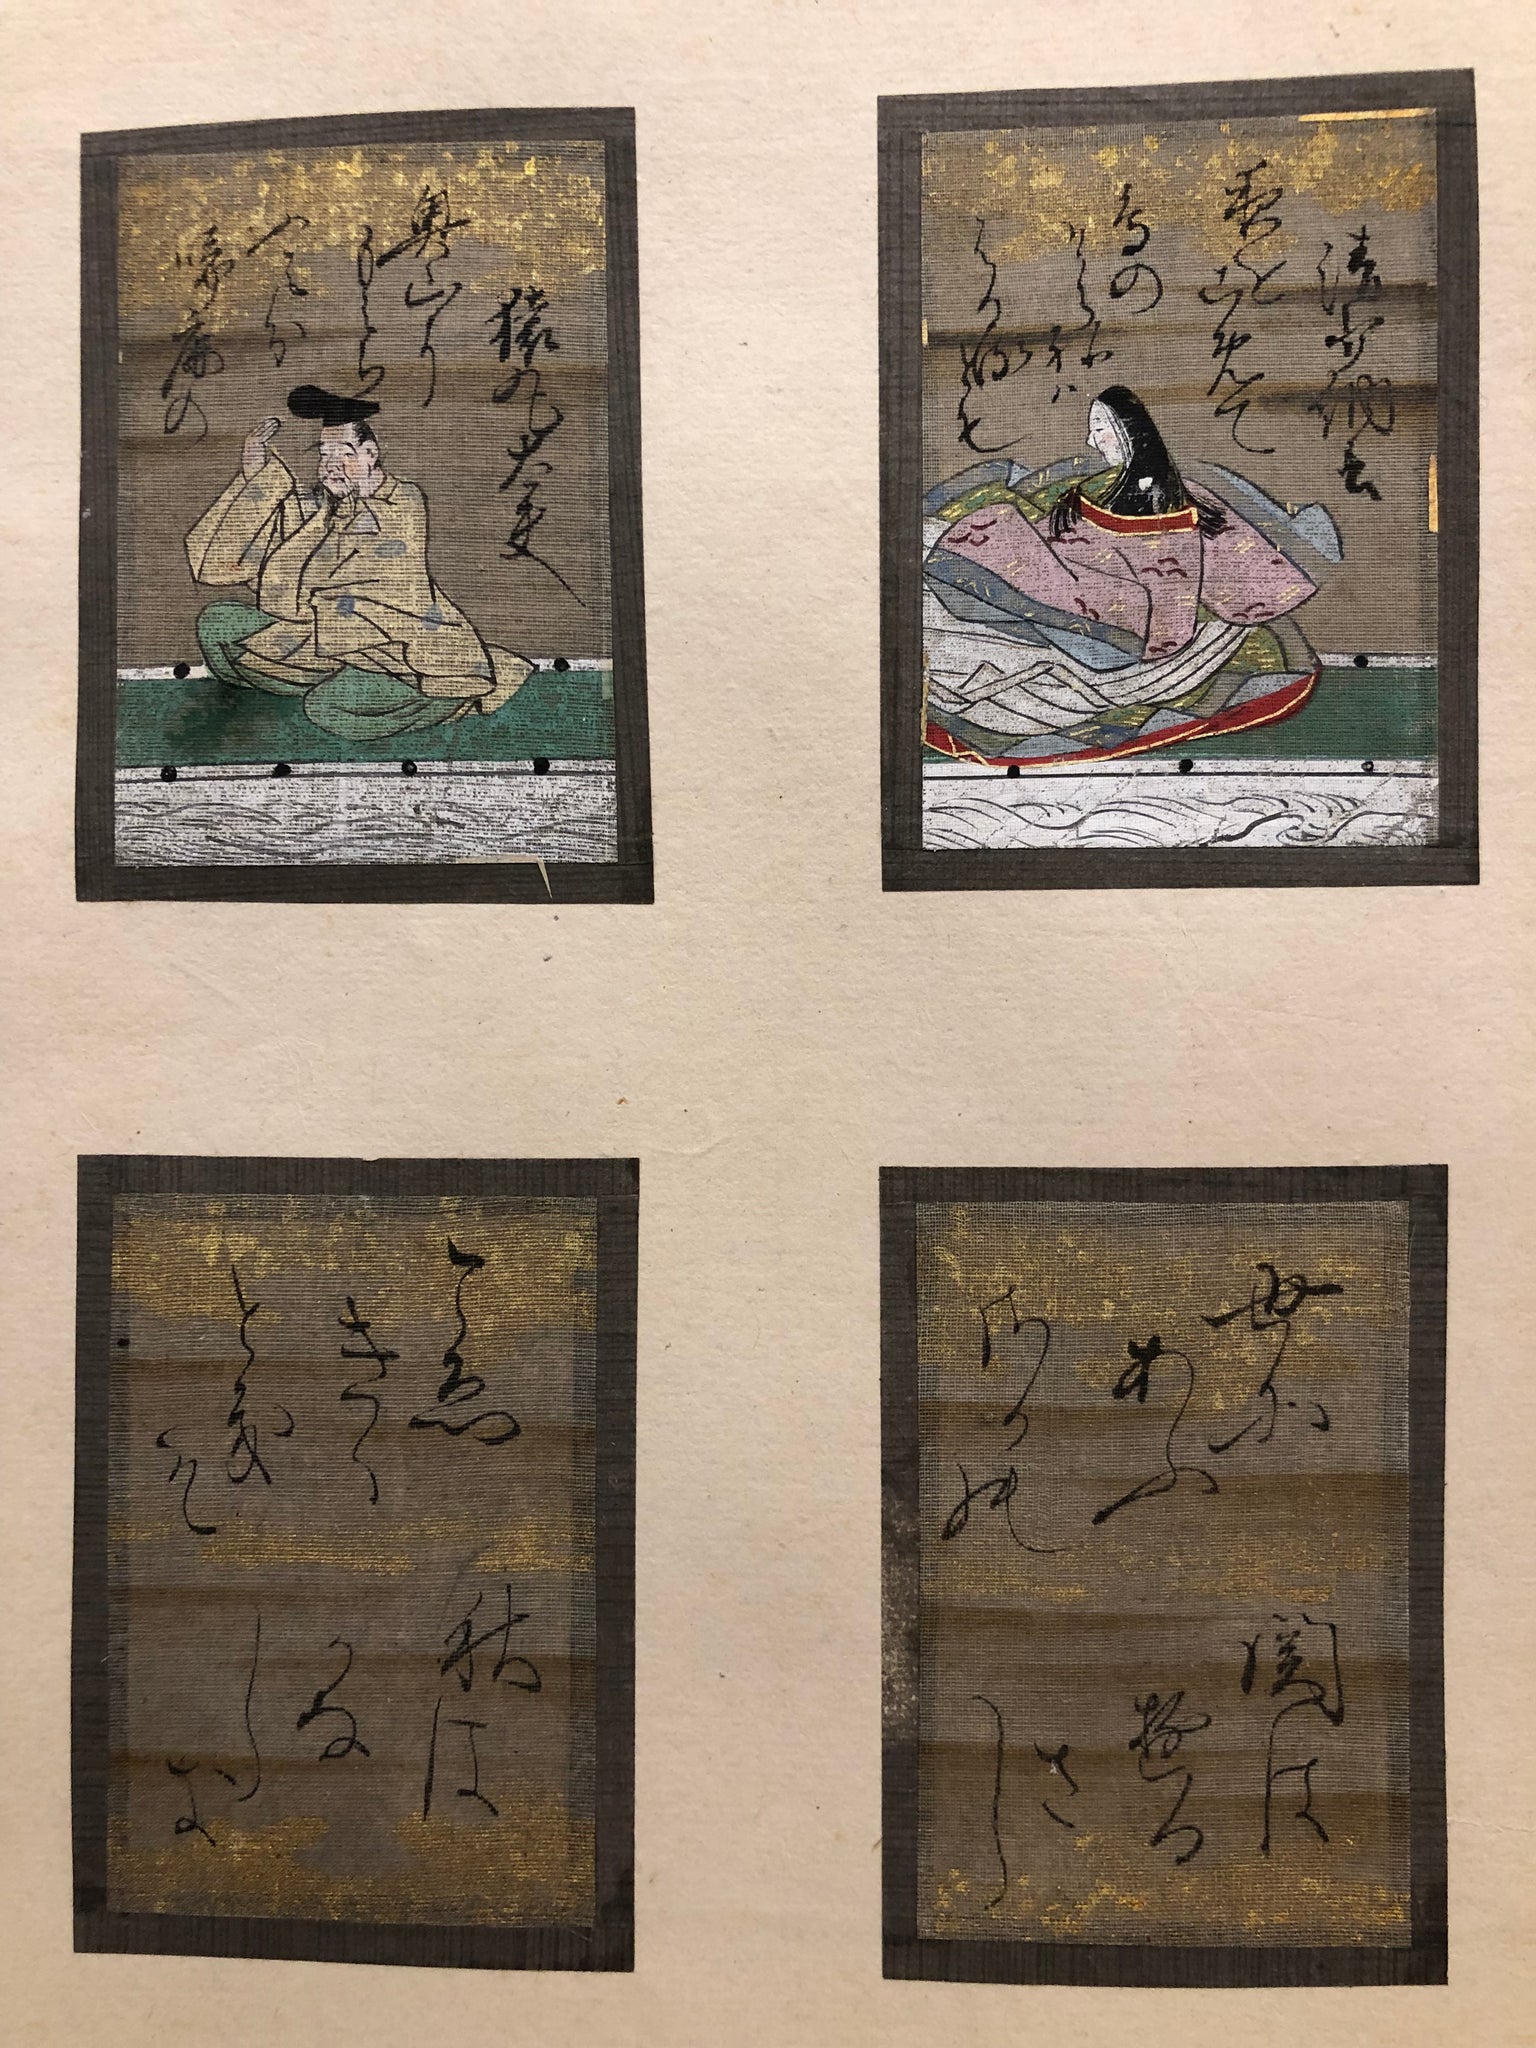 清少納言
夜をこめて
鳥の
そらねは
はかるとも
猿丸大夫
奥山に
もみち
ふみわけ
鳴鹿の
世に
あふ
さかの
関は
ゆる
さ
し
こゑ
きく
とき
そ
秋は
かな
し
き